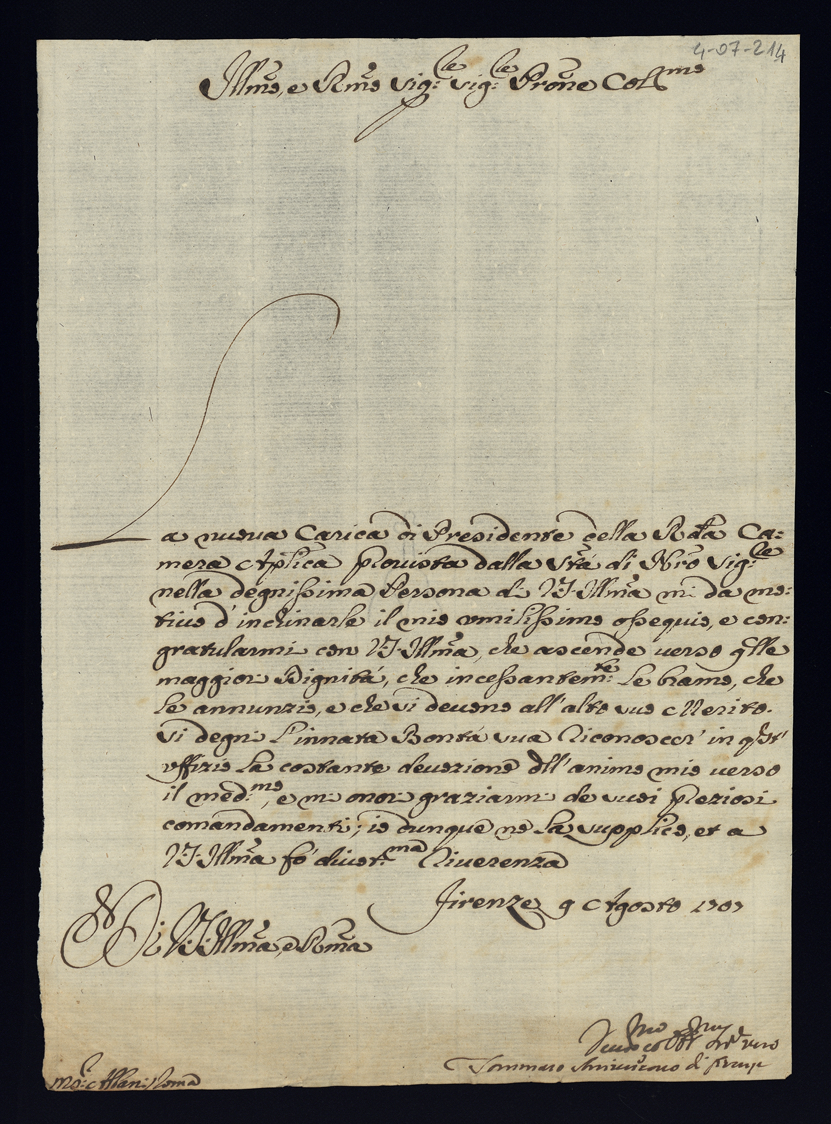 4-07-214
Illmo, e Rmo Sig:re Sig:re Prone Col:mo
La nuova Carica di Presidente della Rda Ca=
mera Aplica provista dalla Stà di Nro Sig:re
nella degnissima Persona di V.S. Illma mi da mo=
tivo d'inchinarle il mio umilissimo ossequio, e con=
gratularmi con V.S. Illma, che ascende verso qlle
maggiori Dignità, che incessantemte: le bramo, che
le annunzio, e che si devono all'alto suo Merito.
Si degni l'innata Bontà sua riconoscer' in qst'
uffizio la costante devozione dll'animo mio verso
il med:mo, e mi onori graziarmi de suoi preziosi
comandamenti; io dunque ne la supplico, et a
V.S. Illma fò divot:ma riverenza
Firenze 9 Agosto 1707
Di V.S. Illma, e Rma
Mo:r Albani Roma
Dmo
Tommaso Arcivescovo di